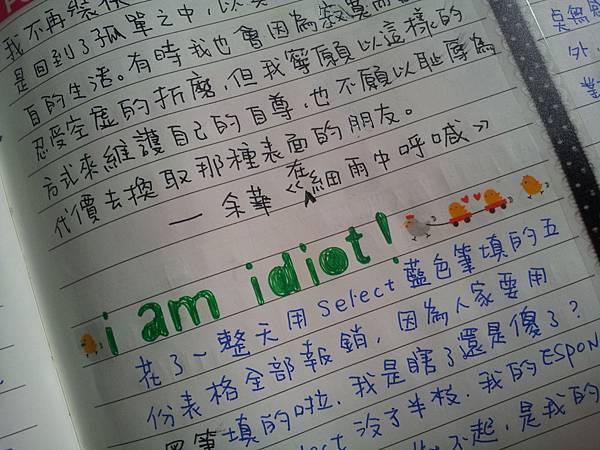 我不再裝模
是回到了孤單之中,以真
百的生活。有時我也會因為寂寞而
忍受空虛的折磨,但我寧願以這樣的
方式來維護自己的自尊,也不願以恥辱為
代價去換取那種表面的朋友。
— 余華《在細雨中呼喊》
i am idiot!
花了一整天用Select藍色筆填的五
份表格全部報銷,因為人家要用
黑筆填的啦.我是瞎了還是傻了?
ect沒了半枝.我的ESPON
不起,是我的
卓無
外,
對